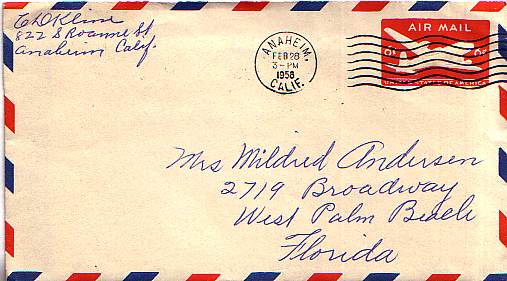 E D Kline
822 S Roanne St
Anaheim Calif.
ANAHEIM,
FEB 28
3-PM
1958
CALIF.
AIR MAIL
6¢ 6¢
UNITED STATES OF AMERICA
Mrs Mildred Andersen
2719 Broadway
West Palm Beach
Florida